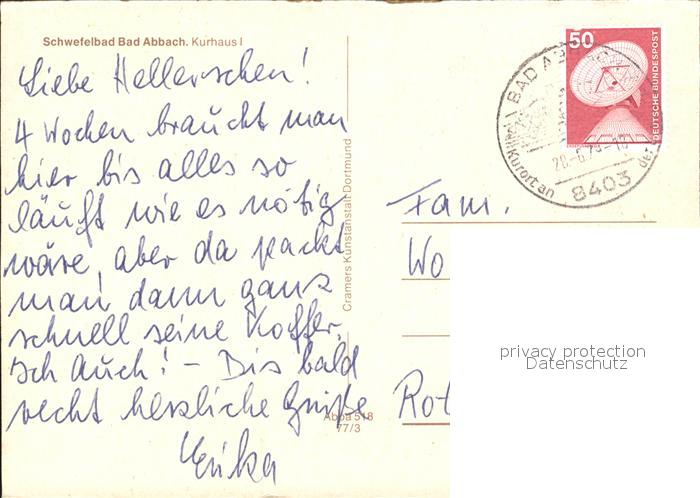 Schwefelbad Bad Abbach. Kurhaus I
Liebe Hellerschen!
4 Wochen braucht man
hier bis alles so
läuft wie es nötig
wäre, aber da packt
man dann ganz
schnell seine Koffer.
Ich auch! – Bis bald
recht herzliche Grüße
Erika
Cramers Kunstanstalt Dortmund
Abba 518
77/3
50
DEUTSCHE BUNDESPOST
BAD A
Kurort an der
8403
Fam.
Wo
Rot
privacy protection
Datenschutz